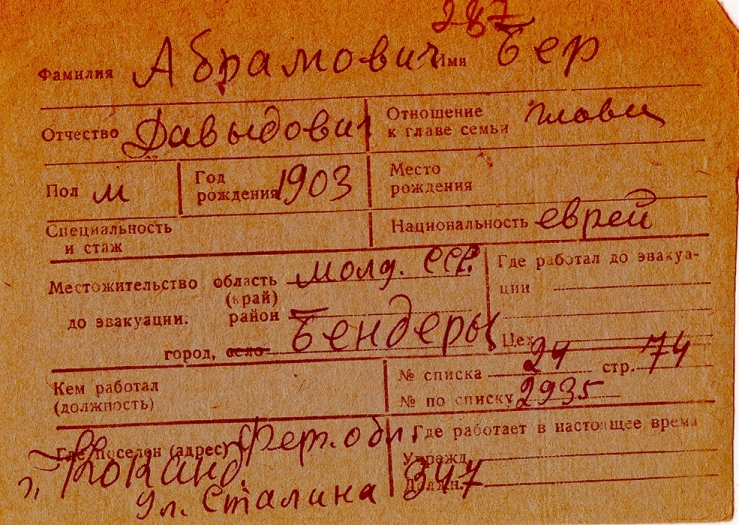 287
Фамилия Абрамович Имя Бер
Отчество Давыдович Отношение к главе семьи глава
Пол м Год рождения 1903 Место рождения
Специальность и стаж Национальность еврей
Местожительство область молд. ССР. Где работал до эвакуа-
(край) ции
до эвакуации: район
город, село Бендеры Цех
Кем работал № списка 24 стр. 74
(должность) № по списку 2935
Где поселен (адрес) Фер. обл. Где работает в настоящее время
г. Коканд Учрежд.
ул. Сталина 347 Должн.